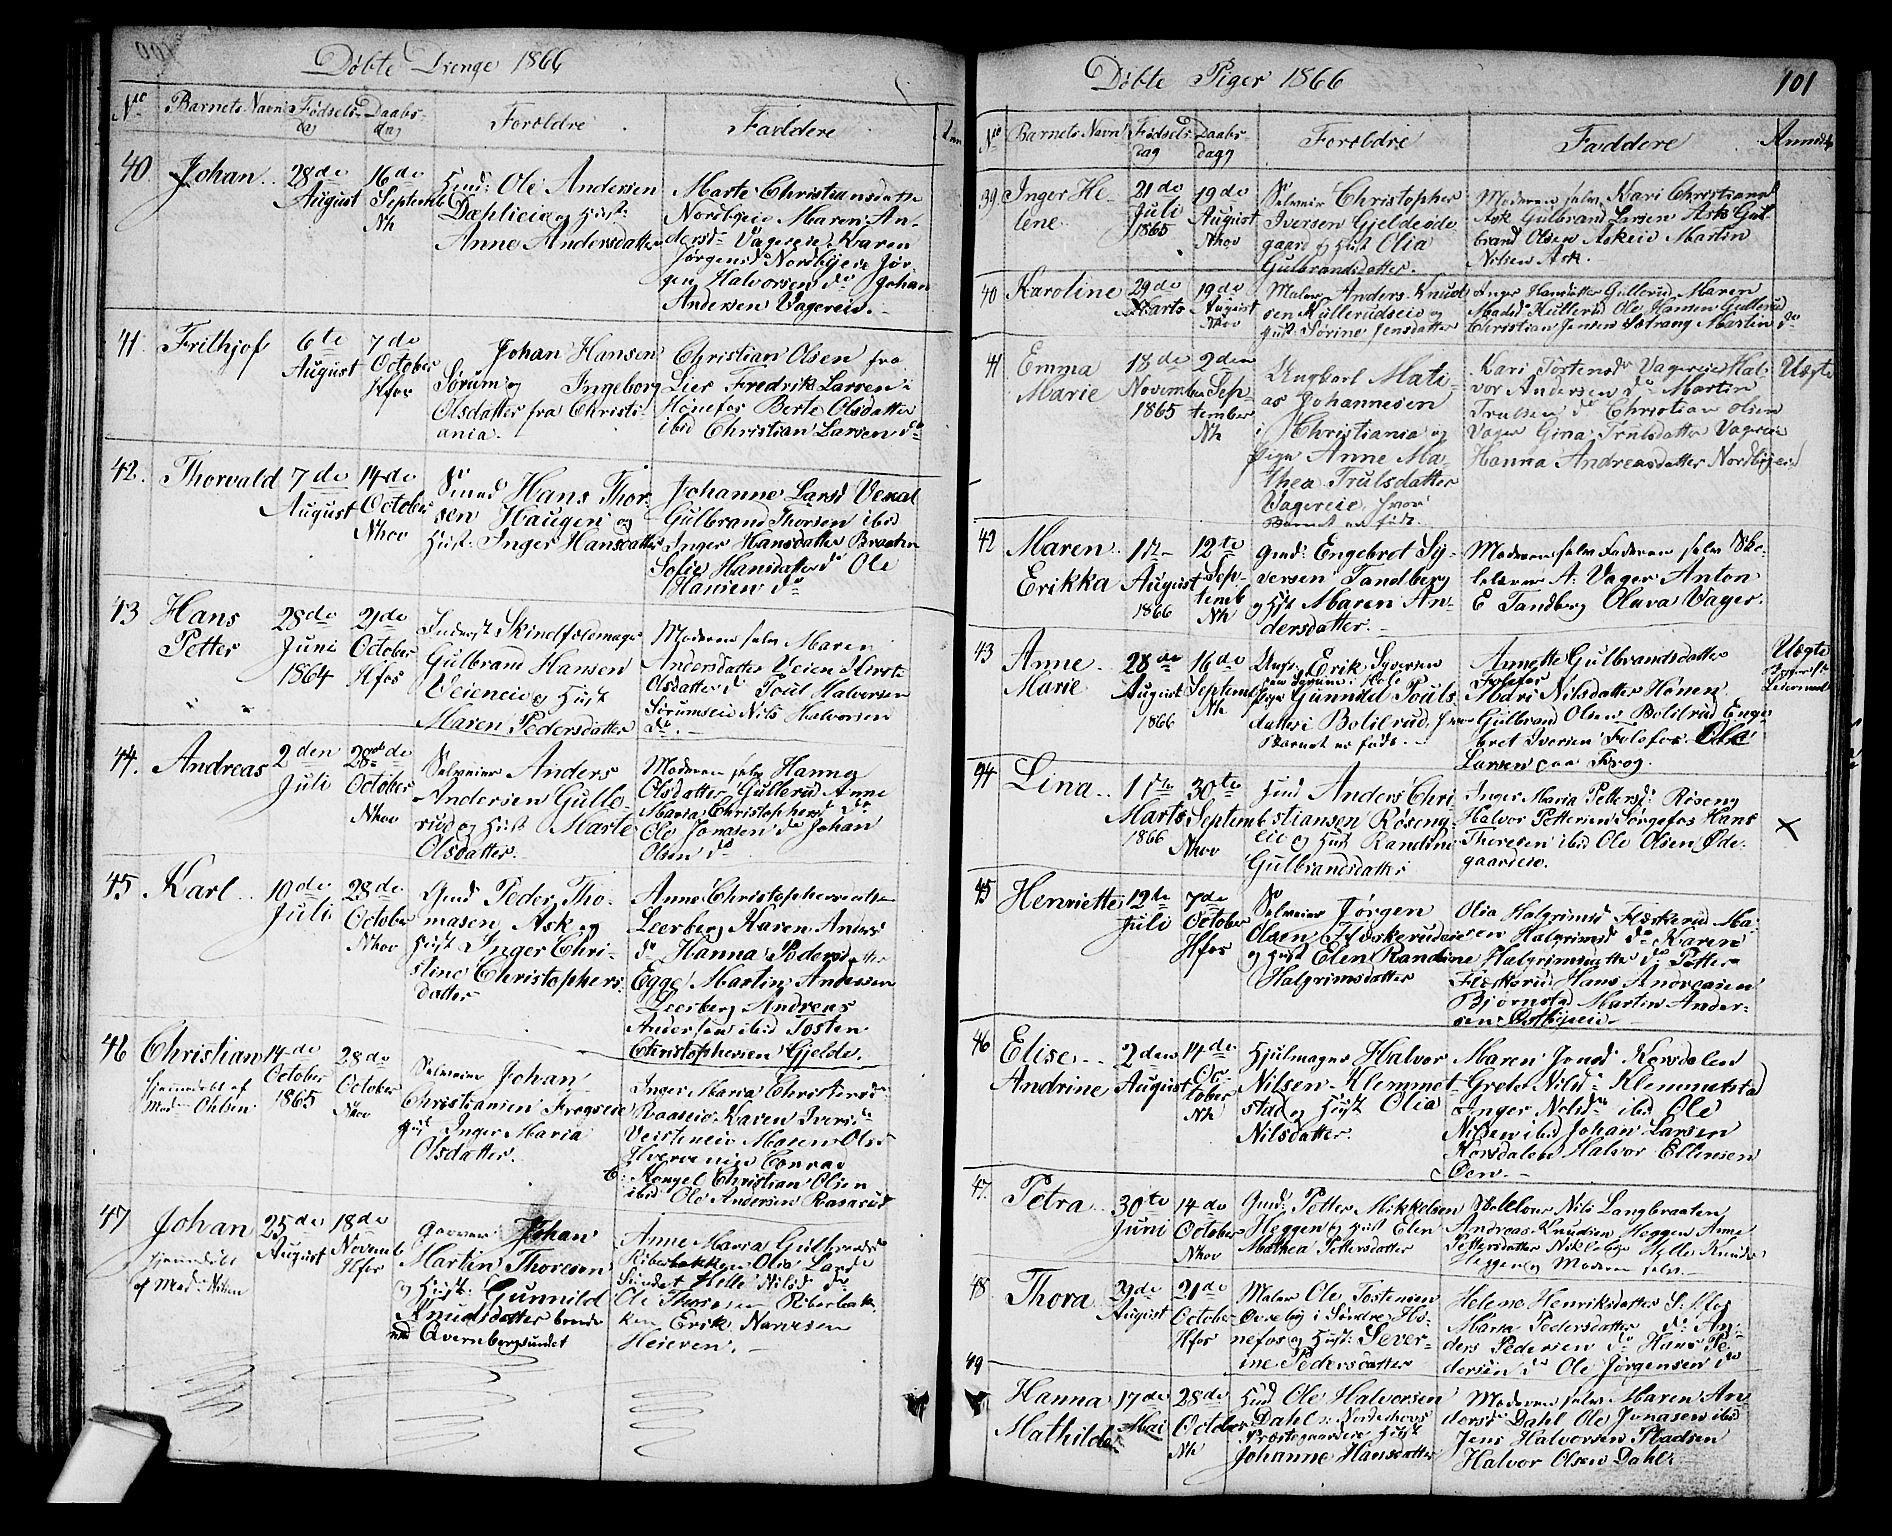 Døbte Drenge 1866
No Barnets Navn Fødsels-dag Daabs-dag Forældre Faddere
40. Johan 28de August 16de Septemb Nh
Ole Andersen
Dæhlieie og Hust:
Anne Andersdatter
Marte Christiansdatter
Nordbyeie Maren An-
dersd: Vagereie, Karen
Jørgensd Nordbyeie Jør-
gen Halvorsen do Johan
Andersen Vagereie.
41. Frithjof 6te August 7de October Hfos
Johan Hansen
Sørum og Ingeborg
Olsdatter fra Christi-
ania.
Christian Olsen fra
Lier Fredrik Larsen i
Hønefos Berte Olsdatter
ibid Christian Larsen do
42. Thorvald 7de August 14de October Nhov
Smed Hans Thor-
sen Haugen og
Hust: Inger Hansdatter
Johanne Larsd Venal
Gulbrand Thorsen ibid
Inger Hansdatter Braaten
Sofie Hansdatter do Ole
Hansen do
43 Hans Petter 28de Juni 1864 21de October Hfos
Inderst Skindfeldmager
Gulbrand Hansen
Veieneie og Hust
Maren Pedersdatter
Moderen selv Maren
Andersdatter Veien
Olsdatter do Halvorsen
Sørumseie Nils Halvorsen
do.
44. Andreas 2den Juli 28de October Nhov
Selveier Anders
Andersen Gulle-
rud og Hust Marte
Olsdatter.
Moderen selv Hanna
Olsdatter Gullerud Anne
Maria Christophersd do
Ole Jonasen do Johan
Olsen do
45 Karl 10de Juli 28de October Nhov
Gmd Peder Tho-
masen Ask og
Hust Inger Chri-
stine Christophers-
datter
Anne Christophersdatter
Leerberg Karen Anders
do Hanna Pedersdatter
Egge Martin Andersen
Leerberg Andreas
Andersen ibid Tosten
Christophersen Gjelde.
46 Christian 14de October 1865 28de October Nhov
hjemmedøbt af
Mad Ohlsen
Selveier Johan
Christiansen Frogseie
Hust Inger Maria
Olsdatter.
Inger Maria Christensd
Karen Iversd
Veisteneie Maren Olsd
Conrad
Christian Olsen
ibid Ole Andersen Rasasrud
47 Johan 25de August 18de Novemb Hfos
hjemmedøbt
af Mad: Nilsen
Johan
Martin Thoresen
og Hust: Gunnild
Knudsdatter boende
ved Qvernbergsundet
Anne Maria Gulbrandsd
Riberbakken Olia Larsd
Sundet Helle Nilsd do
Ole Thoresen Riberbak-
ken, Erik Narvesen
Heieren.
Døbte Piger 1866 101
No Barnets Navn Fødsels-dag Daabs-dag Forældre Faddere Anmærk
39 Inger He-lene 21de Juli 1865 19de August Nhov
Selveier Christopher
Iversen Gjeldeøde-
gaard og Hust Olia
Gulbrandsdatter.
Moderen selv Kari Christiansd
Ask Gulbrand Larsen Ask Gul-
brand Olsen Askeie Martin
Nilsen Ask.
40 Karoline 29de Marts 19de August Nhov
Maler Anders Knud-
sen Kullerudseie og
Hust. Sørine Jensdatter
Inger Hansdatter Gullerud Maren
Madsd Kullerud Ole Hansen Gullerud
Christian Jensen Ystrang Martin do
41 Emma Marie 18de November 1865 2den September Nh
Ungkarl Mati-
as Johannesen
i Christiania og
Pige Anne Ma-
thea Trulsdatter
Vagereie, hvor
Barnet er født.
Kari Tostensdr Vagereie Hal-
vor Andersen do Martin
Trulsen do Christian Olsen
Vager Gina Trulsdatter Vagereie
Hanna Andreasdatter Nordbyeie
Uægte
42 Maren Erikka 1ste August 1866 12te Septemb Nh
Gmd: Engebret Sy-
versen Tandberg
og Hust Maren An-
dersdatter.
Moderen selv Faderen selv Skole-
lærer A: Vager Anton
E Tandberg Olava Vager.
43 Anne Marie 28de August 1866 16de Septemb Nh
Ungk: Erik Syversen
Pige Gunnild Pouls-
datter i Bolilrud, hvor
Barnet er født.
Annette Gulbrandsdatter
Folefos
Mari Nilsdatter Hønen
Gulbrand Olsen Bolilrud Enge-
bret Iversen Folefos Ole
Larsen paa Frog.
Uægte
44 Lina 1ste Marts 1866 30te Septemb Nhov
Anders Chri-
stiansen Røseng-
eie og Hust Randine
Gulbrandsdatter
Inger Maria Pettersd: Røseng
Halvor Pettersen Sørgefos Hans
Thoresen ibid Ole Olsen Øde-
gaardeie.
X
45 Henriette 12te Juli 7de October Hfos
Selveier Jørgen
Olsen Flæskerudeie
og Hust Elen Randine
Halgrimsdatter
Olia Halgrimsd Flæskerud Ma-
ren Halgrimsd do Karen
Halgrimsdatter do Petter
Flæskerud Hans Andreasen
Bjørnstad Martin Ander-
sen
46 Elise Andrine 2den August 14de October Nh
Hjulmager Halvor
Nilsen Klemmet-
stad og Hust Olia
Nilsdatter.
Maren Jensd Korsdalen
Grete Nilsd: Klemmetstad
Inger Nilsdr ibid Ole
Nilsen ibid Johan Larsen
Korsdalen Halvor Ellensen
Øen.
47. Petra 30te Juni 14de October Nhov
Gmd: Petter Mikkelsen
Heggen og Hust Elen
Mathea Pettersdatter
Nils Langbraaten
Andreas Knudsen Heggen Anne
Pettersdatter Nikleby Helle Knudsd
Heggen og Moderen selv.
48 Thora 29de August 21de October Hfos
Maler Ole Tostensen
Øvreby i Søndre Hø-
nefos og Hust: Sever-
ine Pedersdatter
Helene Henriksdatter S: Hfos
Maria Pedersdatter do An-
ders Pedersen do Hans Pe-
dersen do Ole Jørgensen do
49 Hanna Mathilde 17de Mai 28de October Nh
Ole Halvorsen
Dahl Norderhovs
Præstegaardeie Hust
Johanne Hansdatter
Moderen selv Maren An-
dersd Dahl Ole Jonasen ibid
Jens Halvorsen Pladsen
Halvor Olsen Dahl.